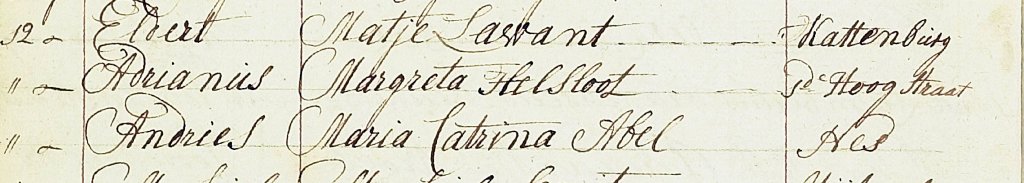 12 Eldert Matje Lavant Kattenburg
" Adrianus Margreta Helsloot Hoog Straat
" Andries Maria Catrina Abel Nes